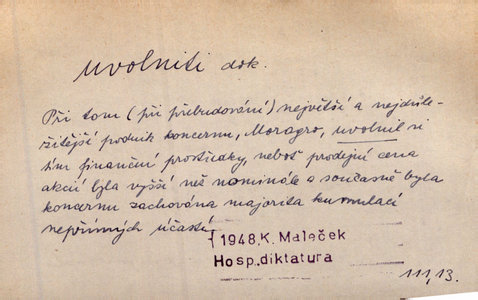 uvolniti dok.
Při tom (při přebudování) největší a nejdůle-
žitější podnik koncernu, Moragro, uvolnil si
tím finanční prostředky, neboť prodejní cena
akcií byla vyšší než nominále a současně byla
koncernu zachována majorita kumulací
nepřímých účastí.
1948, K. Maleček
Hosp. diktatura
111, 13.